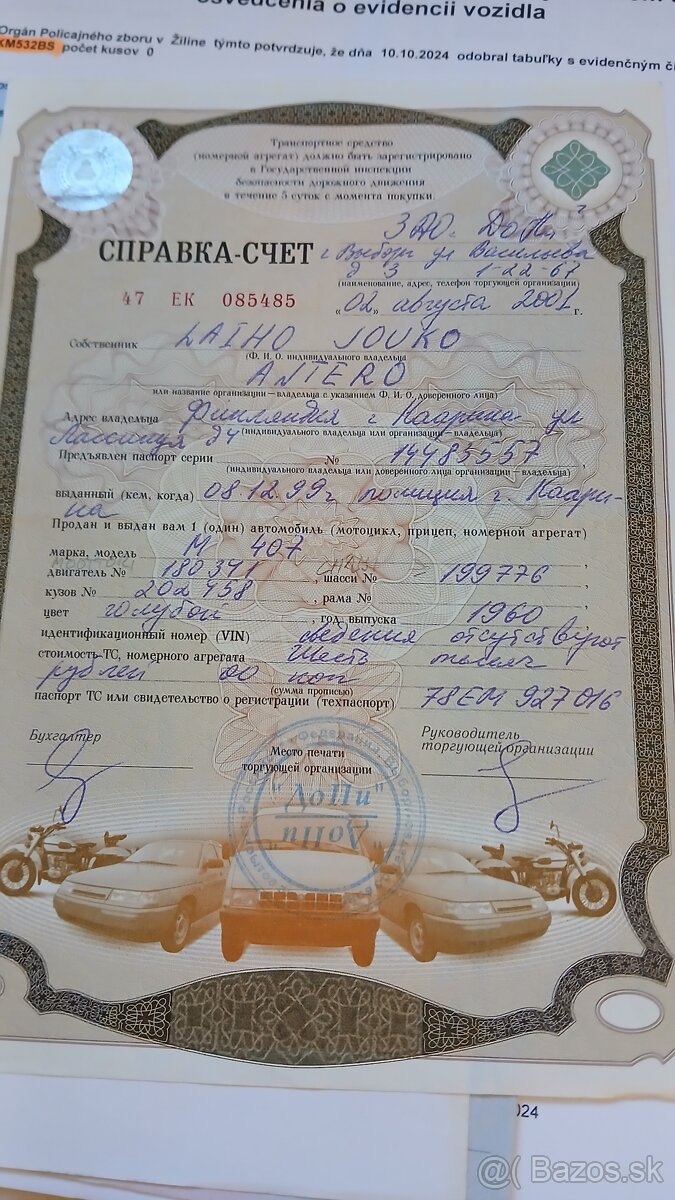 osvedčenia o evidencii vozidla
Orgán Policajného zboru v Žiline týmto potvrdzuje, že dňa 10.10.2024 odobral tabuľky s evidenčným
KM532BS počet kusov 0
Транспортное средство
(номерной агрегат) должно быть зарегистрировано
в Государственной инспекции
безопасности дорожного движения
в течение 5 суток с момента покупки.
ЗАО "ДоПи"
СПРАВКА-СЧЕТ г Выборг ул Васильева
д 3 1-22-67
(наименование, адрес, телефон торгующей организации)
47 ЕК 085485 «02» августа 2001 г.
Собственник LAIHO JOUKO
(Ф. И. О. индивидуального владельца
ANTERO
или название организации—владельца с указанием Ф. И. О. доверенного лица)
Адрес владельца Финляндия г Каарина ул
д 4 (индивидуального владельца или организации—владельца)
Предъявлен паспорт серии № 14485557,
(индивидуального владельца или доверенного лица организации—владельца)
выданный (кем, когда) 08.12.99г полиция г. Каари-
на
Продан и выдан вам 1 (один) автомобиль (мотоцикл, прицеп, номерной агрегат)
марка, модель М 407,
MOOTTORI
двигатель № 180341, шасси № 199776,
кузов № 202458, рама №,
цвет голубой, год выпуска 1960
идентификационный номер (VIN) сведения отсутствуют
стоимость ТС, номерного агрегата Шесть тысяч
рублей 00 коп
(сумма прописью)
паспорт ТС или свидетельство о регистрации (техпаспорт) 78ЕМ 927016
Бухгалтер
Руководитель
торгующей организации
Место печати
торгующей организации
"ДоПи"
024
@( Bazos.sk